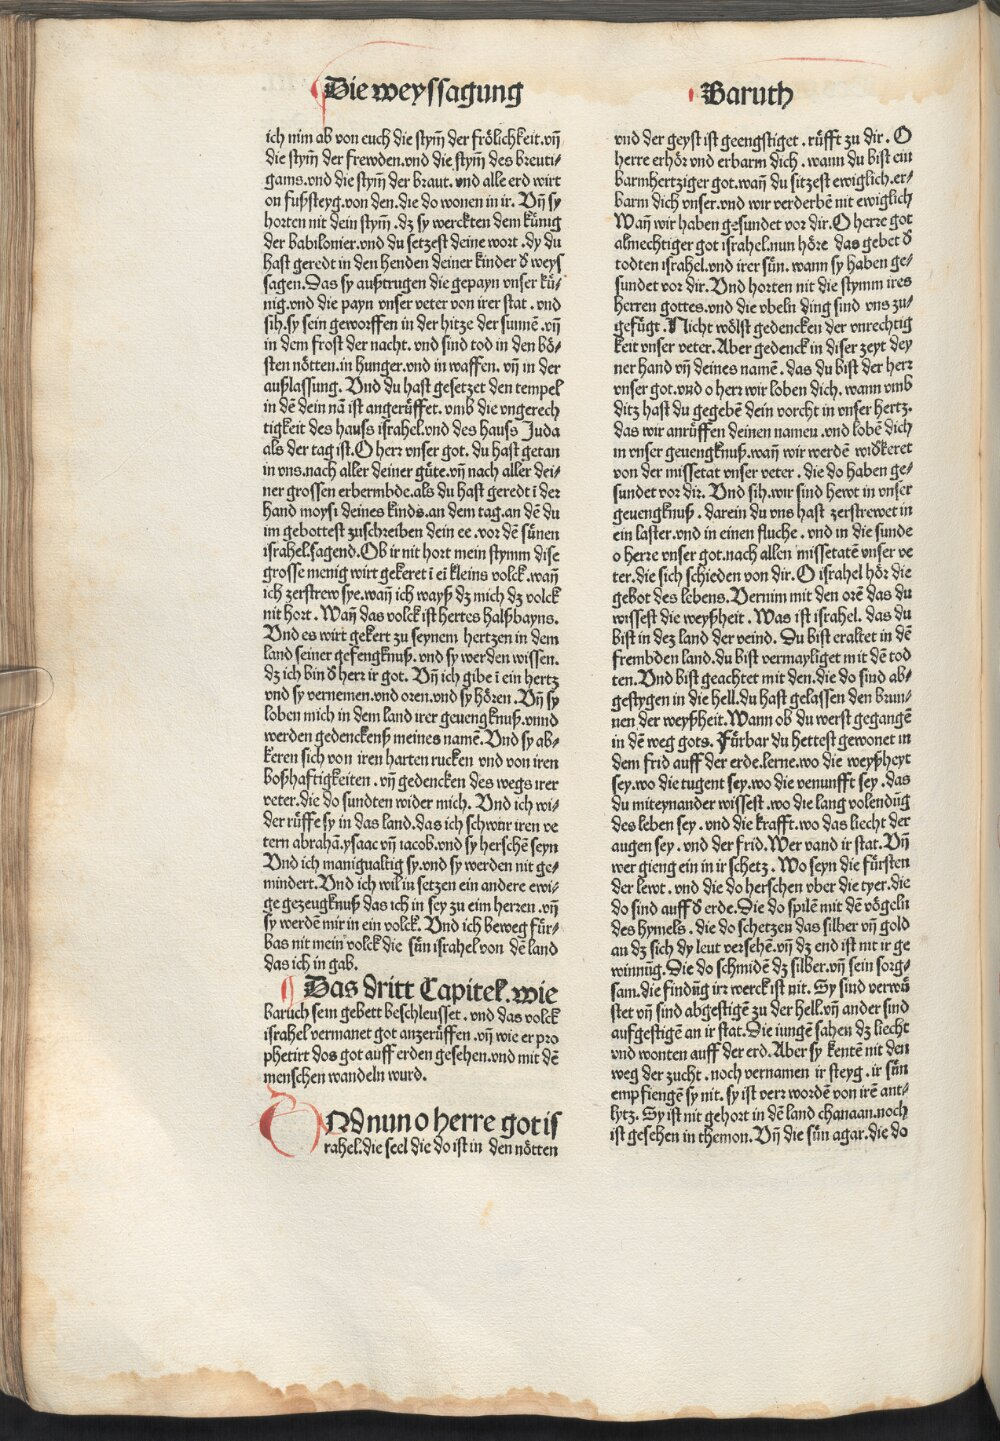 Die weyssagung
Baruth
ich nim ab von euch die stym̄ der frölichkeit.vn̄
die stym̄ der frewden.vnd die stym̄ des breuti-
gams.vnd die stym̄ der braut. vnd alle erd wirt
on fußsteyg.von den.die do wonen in ir. Vn̄ sy
horten nit dein stym̄ .dz sy werckten dem künig
der babilonier.vnd du setzest deine wort .dy du
hast geredt in den henden deiner kinder d̕ weys
sagen.Das sy außtrugen die gepayn vnser kü-
nig.vnd die payn vnser veter von irer stat . vnd
sih.sy sein geworffen in der hitze der sunnē .vn̄
in dem frost der nacht. vnd sind tod in den bö-
sten nötten.in hunger.vnd in waffen. vn̄ in der
außlassung. Vnd du hast gesetzet den tempel
in dē dein nā ist angerüffet. vmb die vngerech
tigkeit des hauss israhel.vnd des hauss Juda
als der tag ist.O herr vnser got. du hast getan
in vns.nach aller deiner güte.vn̄ nach aller dei-
ner grossen erbermbde.als du hast geredt ī der
hand moysi deines kinds.an dem tag.an dē du
im gebottest zuschreiben dein ee .vor dē sünen
israhel.sagend.Ob ir nit hort mein stymm dise
grosse menig wirt gekeret ī ei kleins volck.wan̄
ich zerstrew sye.wan̄ ich wayß dz mich dz volck
nit hort . Wan̄ das volck ist hertes halßbayns.
Vnd es wirt gekert zu seynem hertzen in dem
land seiner gefengknuß. vnd sy werden wissen.
dz ich bin d̕ herr ir got. Vn̄ ich gibe ī ein hertz
vnd sy vernemen.vnd oren.vnd sy hören . Vn̄ sy
loben mich in dem land irer geuengknuß.vnnd
werden gedenckenß meines namē.Vnd sy ab-
keren sich von iren harten rucken vnd von iren
boßhaftigkeiten . vn̄ gedencken des wegs irer
veter.die do sundten wider mich. Vnd ich wi-
der rüffe sy in das land.das ich schwur iren ve
tern abrahā.ysaac vn̄ iacob.vnd sy herschē seyn
Vnd ich manigualtig sy.vnd sy werden nit ge-
mindert.Vnd ich wil in setzen ein andere ewi-
ge gezeugknuß das ich in sey zu eim herren .vn̄
sy werdē mir in ein volck. Vnd ich beweg für-
bas nit mein volck die sün israhel von dē land
das ich in gab.
Das dritt Capitel.wie
baruch sein gebett beschleusset . vnd das volck
israhel vermanet got anzerüffen .vn̄ wie er pro
phetirt dos got auff erden gesehen.vnd mit dē
menschen wandeln wurd.
VNd nun o herre got is
rahel.die seel die do ist in den nötten
vnd der geyst ist geengstiget . rüfft zu dir . O
herre erhör vnd erbarm dich . wann du bist ein
barmhertziger got.wan̄ du sitzest ewiglich.er-
barm dich vnser.vnd wir verderbē nit ewiglich
Wan̄ wir haben gesundet vor dir.O herre got
almechtiger got israhel.nun höre das gebet d̕
todten israhel.vnd irer sün. wann sy haben ge-
sundet vor dir. Vnd horten nit die stymm ires
herren gottes.vnd die vbeln ding sind vns zu-
gefügt .Nicht wölst gedencken der vnrechtig
keit vnser veter.Aber gedenck in diser zeyt dey
ner hand vn̄ deines namē. das du bist der herr
vnser got.vnd o herr wir loben dich. wann vmb
ditz hast du gegebē dein vorcht in vnser hertz.
das wir anrüffen deinen namen .vnd lobē dich
in vnser geuengknuß.wan̄ wir werdē wid̕keret
von der missetat vnser veter . die do haben ge-
sundet vor dir. Vnd sih.wir sind hewt in vnser
geuengknuß . darein du vns hast zerstrewet in
ein laster.vnd in einen fluche . vnd in die sunde
o herre vnser got.nach allen missetatē vnser ve
ter.die sich schieden von dir.O israhel hör die
gebot des lebens. Vernim mit den orē das du
wissest die weyßheit . Was ist israhel. das du
bist in dez land der veind. Du bist eraltet in dē
frembden land.du bist vermayliget mit dē tod
ten.Vnd bist geachtet mit den.die do sind ab-
gestygen in die hell.du hast gelassen den brun-
nen der weyßheit.Wann ob du werst gegangē
in dē weg gots. Fürbar du hettest gewonet in
dem frid auff der erde.lerne.wo die weyßheyt
sey.wo die tugent sey.wo die venunfft sey .das
du miteynander wissest .wo die lang volendūg
des leben sey . vnd die krafft.wo das liecht der
augen sey . vnd der frid. Wer vand ir stat. Vn̄
wer gieng ein in ir schetz . Wo seyn die fürsten
der lewt . vnd die do herschen vber die tyer.die
do sind auff d̕ erde.Die do spilē mit dē vögeln
des hymels . die do schetzen das silber vn̄ gold
an dz sich dy leut versehē.vn̄ dz end ist nit ir ge
winnūg.Die do schmidē dz silber.vn̄ sein sorg-
sam.die findūg irr werck ist nit. Sy sind verwü
stet vn̄ sind abgestigē zu der hell.vn̄ ander sind
aufgestigē an ir stat.Die iungē sahen dz liecht
vnd wonten auff der erd.Aber sy kentē nit den
weg der zucht . noch vernamen ir steyg . ir sün
empfiengē sy nit. sy ist verr wordē von irē ant-
lytz. Sy ist nit gehort in dē land chanaan.noch
ist gesehen in themon. Vn̄ die sün agar.die do